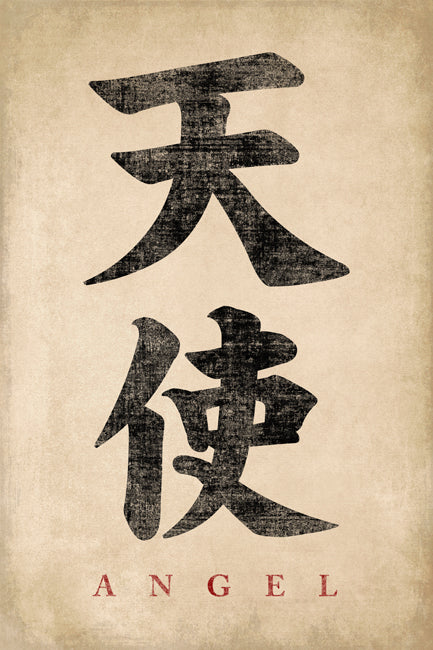 天使
ANGEL